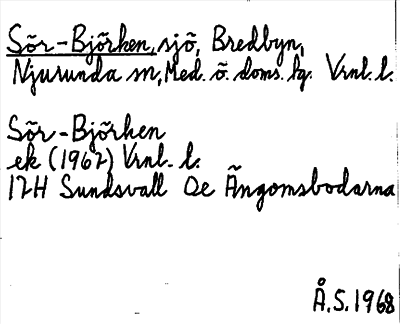 Sör-Björken, sjö, Bredbyn,
Njurunda sn, Med. ö. doms. hg. Vrnl. l.
Sör-Björken
ek (1967) Vrnl. l.
17H Sundsvall Oe Ängomsbodarna
Å.S. 1968